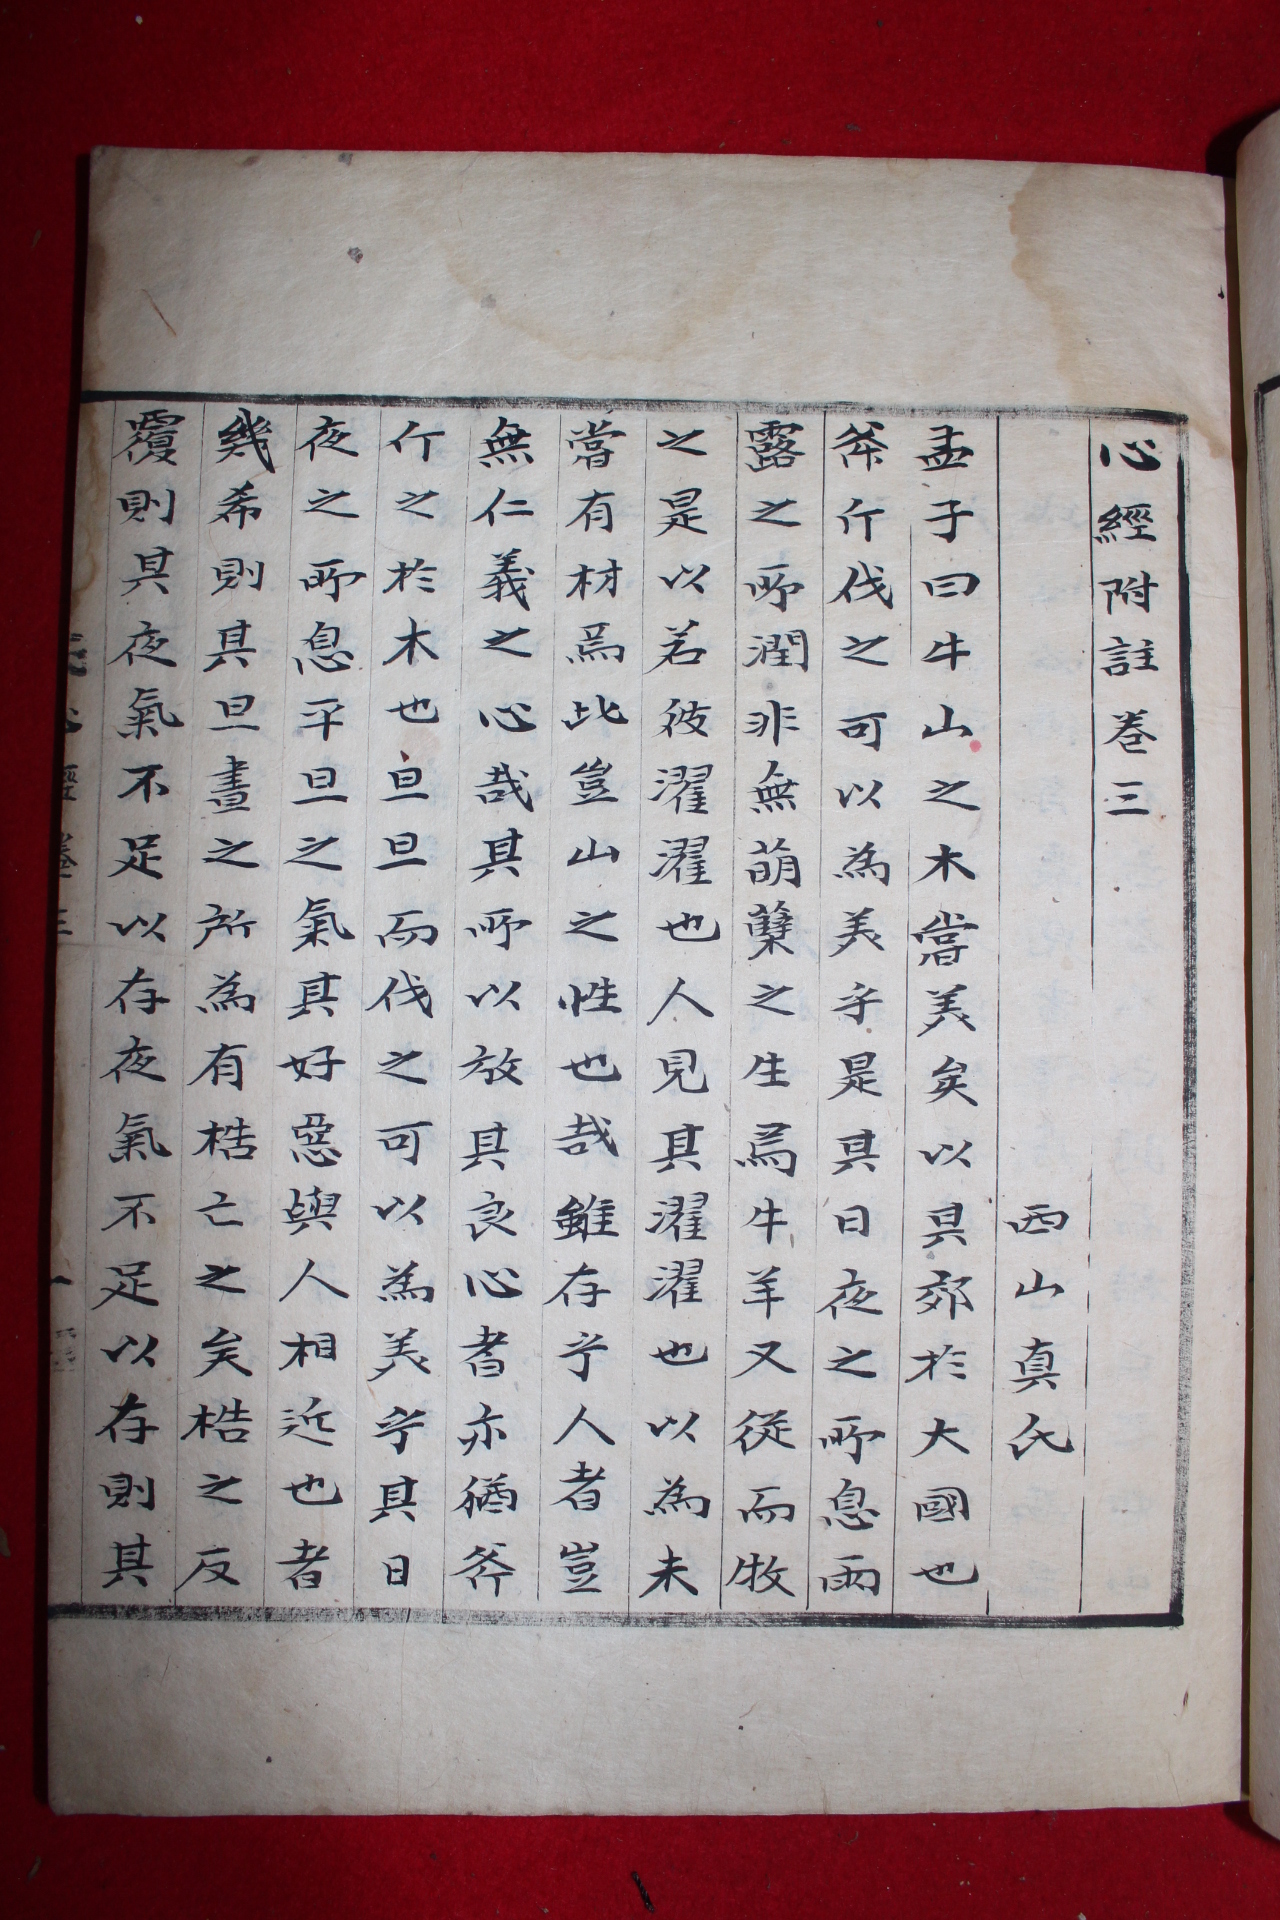 心經附註卷三
西山真氏
孟子曰牛山之木嘗美矣以其郊於大國也
斧斤伐之可以為美乎是其日夜之所息雨
露之所潤非無萌蘖之生焉牛羊又從而牧
之是以若彼濯濯也人見其濯濯也以為未
嘗有材焉此豈山之性也哉雖存乎人者豈
無仁義之心哉其所以放其良心者亦猶斧
斤之於木也旦旦而伐之可以為美乎其日
夜之所息平旦之氣其好惡與人相近也者
幾希則其旦晝之所為有梏亡之矣梏之反
覆則其夜氣不足以存夜氣不足以存則其
心經卷三
一